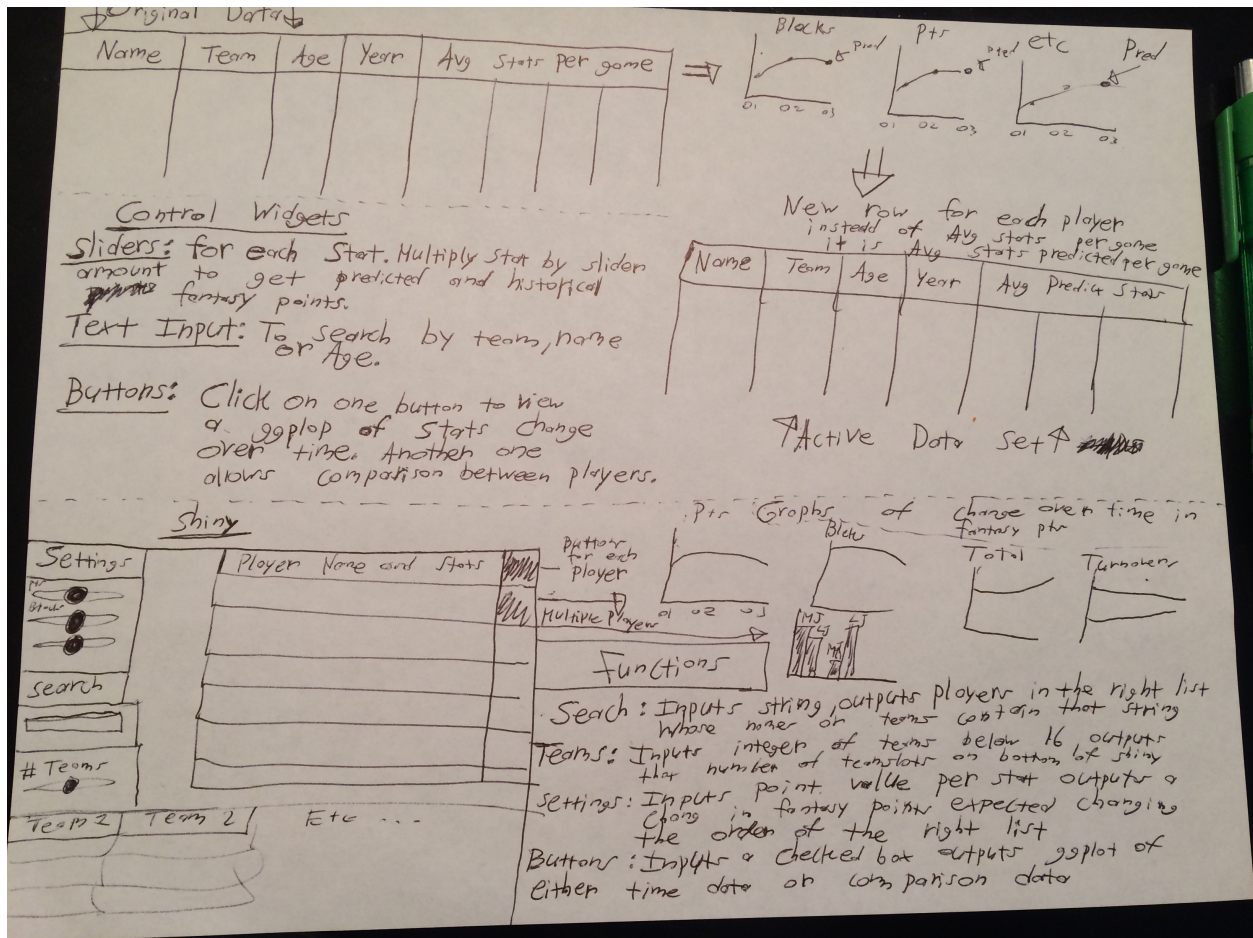 Original Data
Name Team Age Year Avg Stats per game
Blocks
Pred
01 02 03
Pts
Pred
01 02 03
etc
Pred
01 02 03
New row for each player
instead of Avg stats per game
it is Avg stats predicted per game
Name Team Age Year Avg Predict Stats
Active Data Set
Control Widgets
Sliders: for each Stat. Multiply Stat by slider
amount to get predicted and historical
fantasy points.
Text Input: To search by team, name
or Age.
Buttons: Click on one button to view
a ggplop of Stats change
over time. Another one
allows comparison between players.
Shiny
Settings
Blocks
search
# Teams
Team 2 Team 2 Etc ...
Player Name and Stats
Button
for each
Player
Multiple Players
Pts Graphs of change over time in
fantasy pts
01 02 03
Blcks
Total
Turnovers
MJ LJ
MJ LJ
Functions
Search: Inputs string, outputs players in the right list
whose names or teams contain that string
Teams: Inputs integer of teams below 16 outputs
that number of teamslots on bottom of shiny
Settings: Inputs point value per stat outputs a
chang in fantasy points expected changing
the order of the right list
Buttons: Inputs a checked box outputs ggplot of
either time data or comparison data